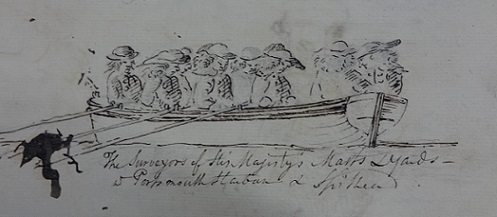 The Surveyors of His Majesty's Masts & Yards –
at Portsmouth Harbour & Spithead